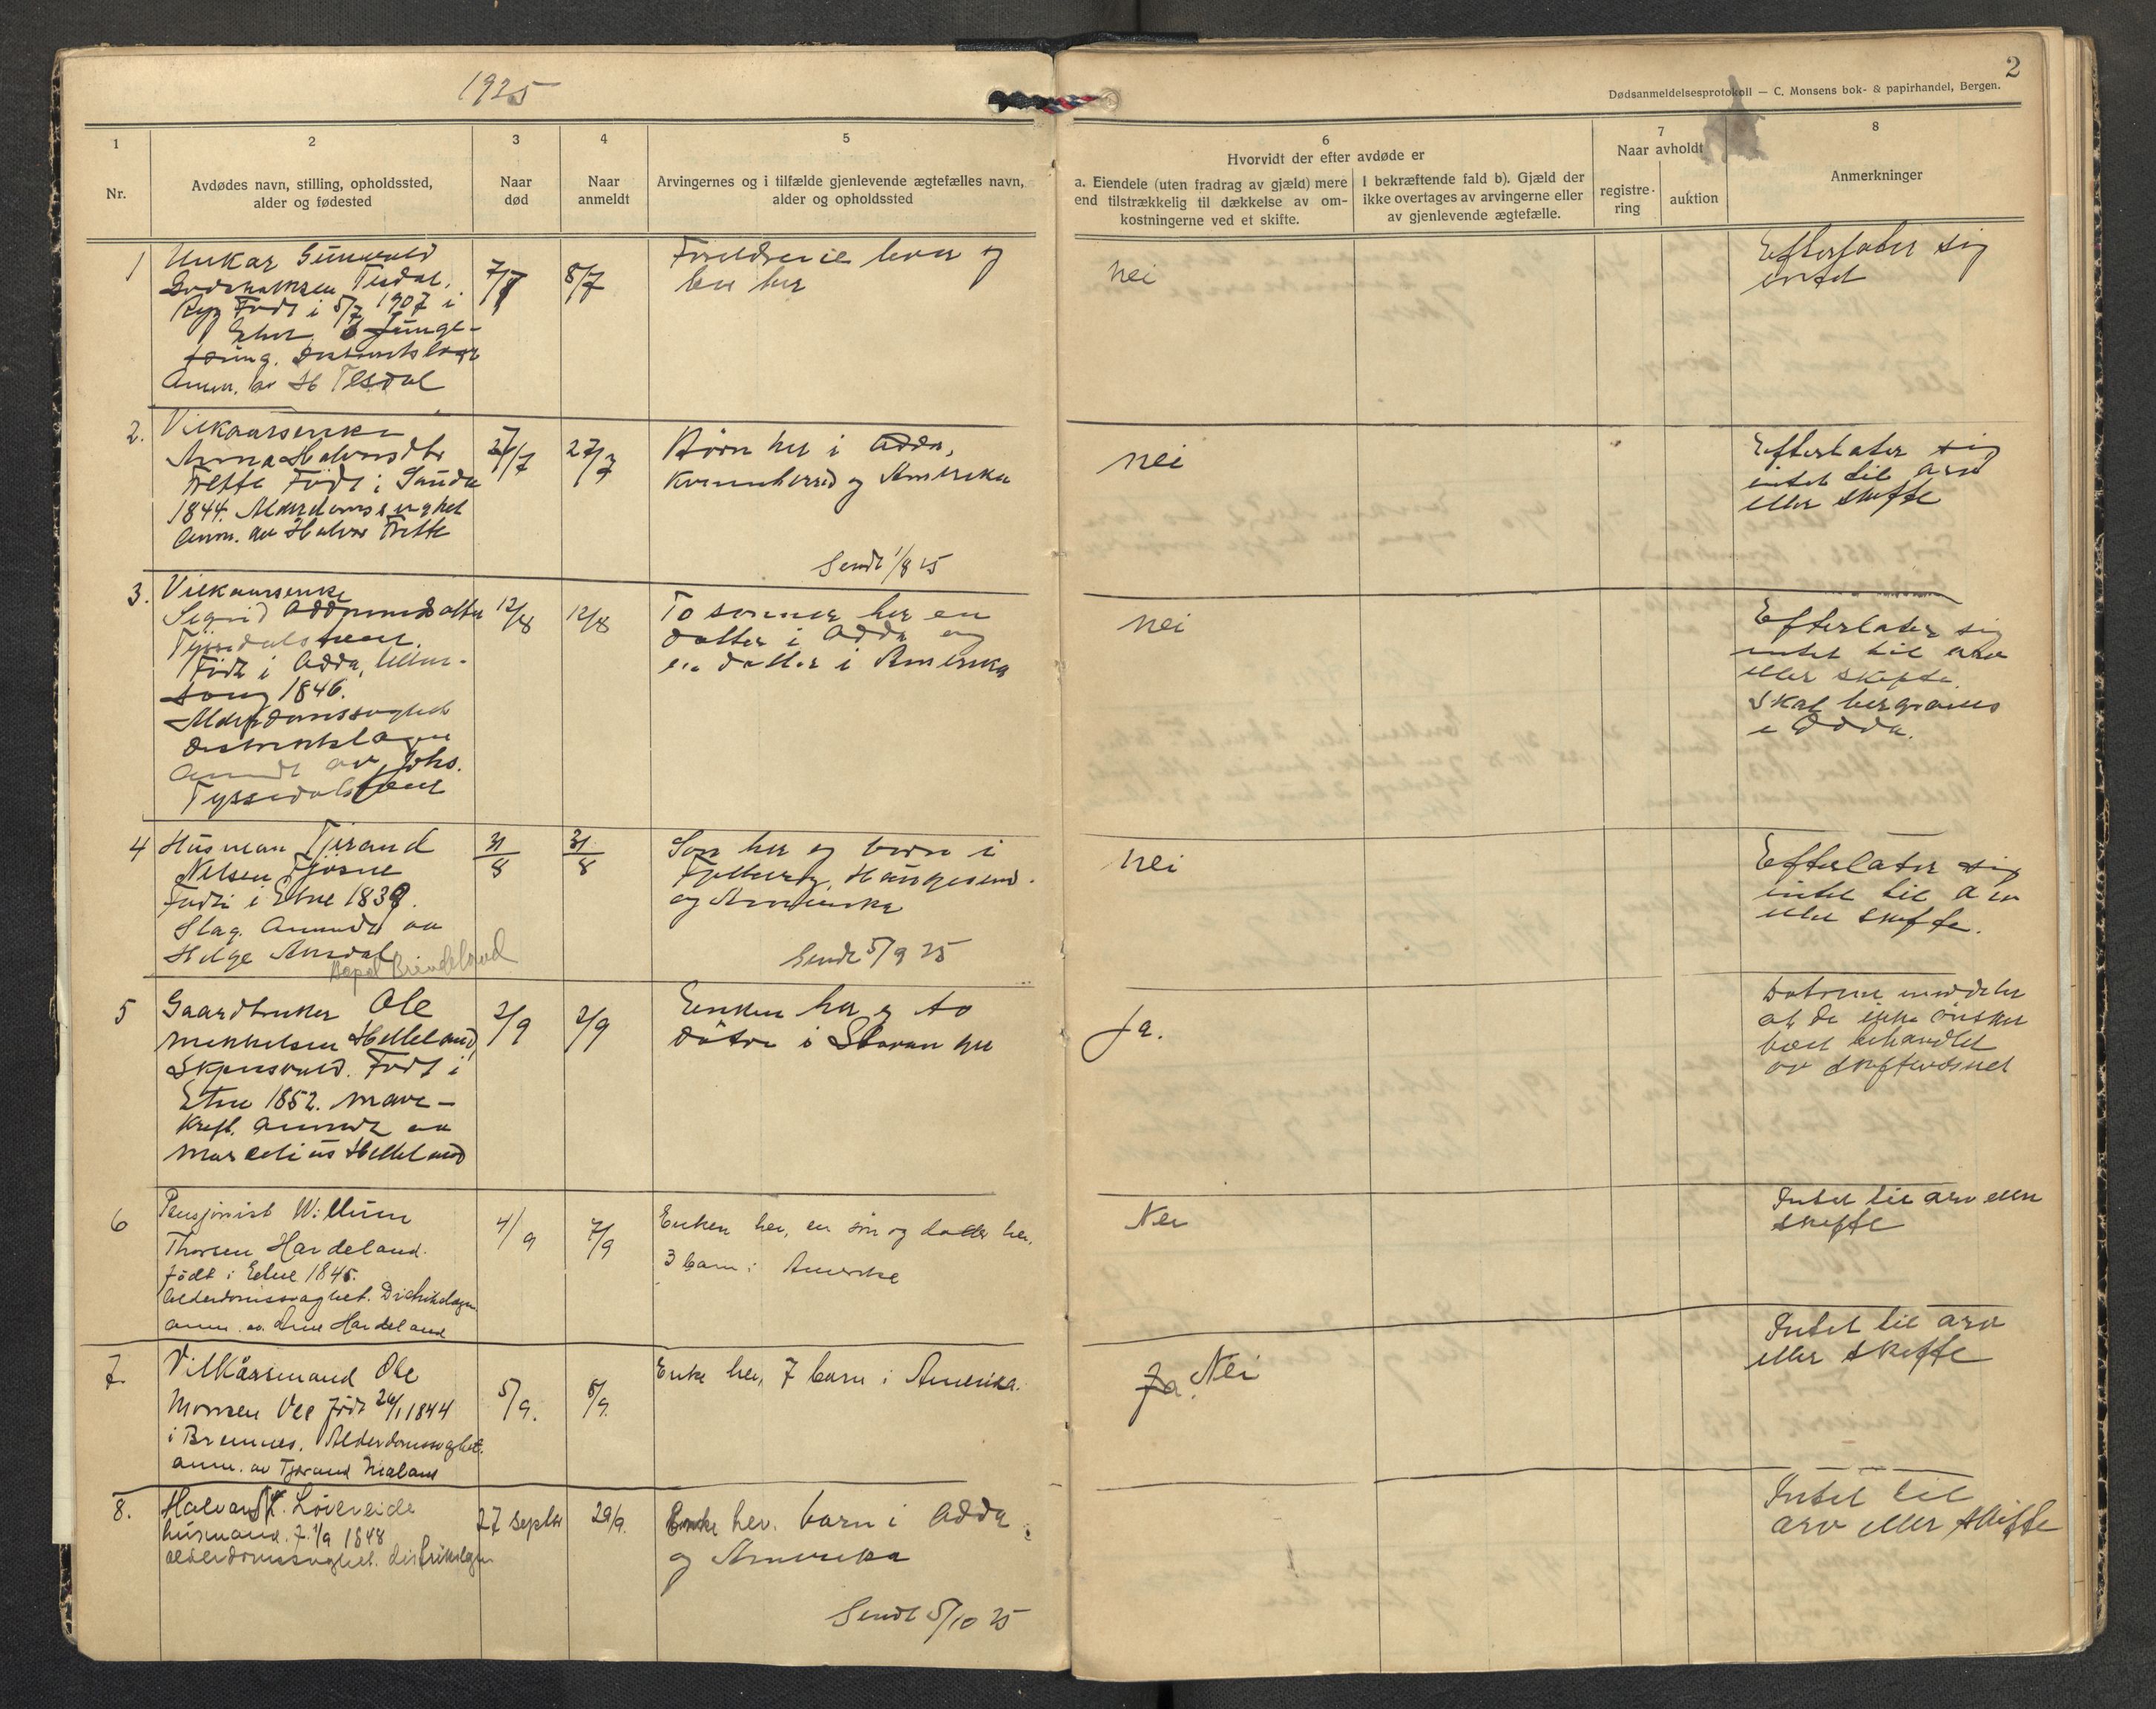 1925
2
Dødsanmeldelsesprotokoll — C. Monsens bok- & papirhandel, Bergen.
1
Nr.
2
Avdødes navn, stilling, opholdssted,
alder og fødested
3
Naar
død
4
Naar
anmeldt
5
Arvingernes og i tilfælde gjenlevende ægtefælles navn,
alder og opholdssted
6
Hvorvidt der efter avdøde er
a. Eiendele (uten fradrag av gjæld) mere
end tilstrækkelig til dækkelse av om-
kostningerne ved et skifte.
I bekræftende fald b). Gjæld der
ikke overtages av arvingerne eller
av gjenlevende ægtefælle.
7
Naar avholdt
registre-
ring
auktion
8
Anmerkninger
1
Tesdal
Født i 5/7 1907 i
Anm. av H Tesdal
7/7
8/7
lever og
bor her
nei
Efterlater sig
intet
2.
Vilkaarsenke
Anna Halvorsdtr
Frette Født i Sauda
1844. Alderdomssvaghet
Anm. av Halvor Frette
27/7
27/7
Børn her i Odda,
Kvinnherred og Amerika
Sendt 1/8 25
nei
Efterlater sig
intet til arv
eller skifte
3.
Vilkaarsenke
Sigrid Oddmundsdatter
Tyssedalstveit.
Født i Odda, Ullen-
svang 1846.
Alderdomssvaghet
Distriktslægen
Anmdt av Johs.
Tyssedalstveit
12/8
12/8
To sønner her en
datter i Odda og
en datter i Amerika
nei
Efterlater sig
intet til arv
eller skifte.
Skal begraves
i Odda.
4
Husman Tjerand
Nelsen
Født i Etne 1839.
Slag. Anmeldt av
Helge
31/8
31/8
Søn her og børn i
Fjelberg, Haugesund.
og Amerika
Sendt 5/9 25
nei
Efterlater sig
intet til arv
eller skifte.
5
Gaardbruker Ole
Mikkelsen Helleland,
Skjensvold. Født i
Etne 1852. Mave-
kreft. Anmeldt av
Marselius Helleland
2/9
2/9
Enken her og to
døtre i Stavanger
Ja.
Døtrene meddeler
at de ikke ønsker
boet behandlet
av skiftevæsnet
6
Pensjonist Willum
Thorsen Hardeland.
født i Etne 1845.
Alderdomssvaghet. Distriktslægen
anm. av Arne Hardeland
4/9
7/9
Enken her, en søn og datter her,
3 barn i Amerika
Nei
Intet til arv eller
skifte
7.
Vilkårsmand Ole
Monsen Vee født 26/1 1844
i Bremnes. Alderdomssvaghet.
anm. av Tjerand
5/9.
5/9.
Enke her, 7 barn i Amerika.
Ja. Nei
Intet til arv
eller skifte
8.
Halvard
husmand. f. 1/9 1848
alderdomssvaghet. distriktslægen
27 septbr
29/9.
Enke her. barn i Odda
og Amerika
Sendt 5/10 25
Intet til
arv eller skifte